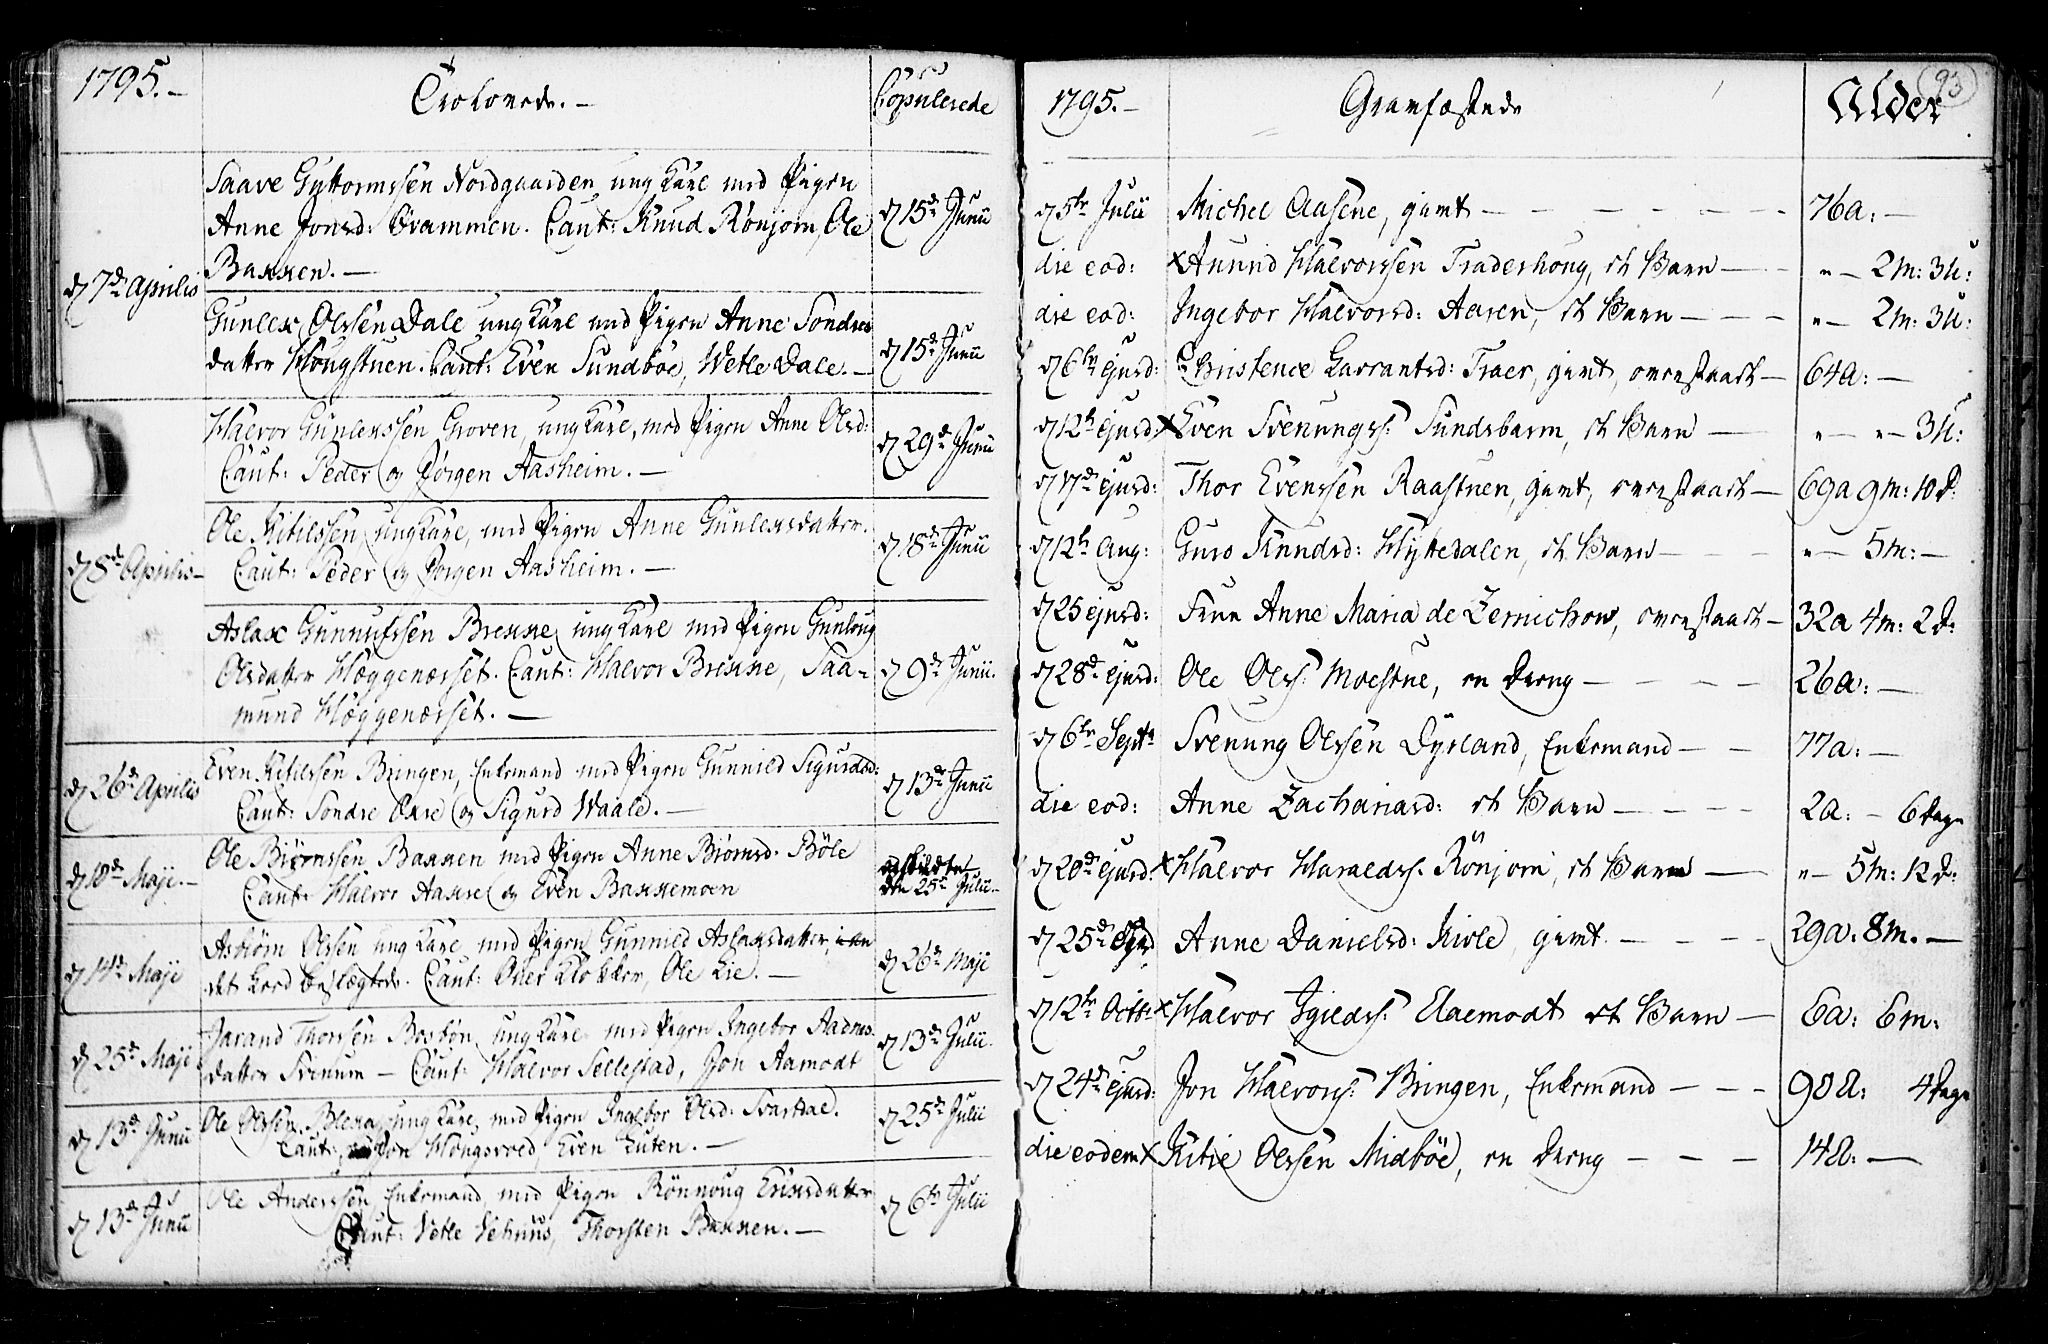 1795.-
Trolovede.-
Copulerede
d 7de Aprilis
Saave Guttormssen Nordgaarden ungkarl med Pigen
Anne Jonsd: Ovrammen. Caut: Knud Rönjom, Ole
Bakken.-
d 15de Junii
Gunlex Olssen Dale ungkarl med Pigen Anne Sondres
datter Hougstuen. Caut: Even Sundböe, Wetle Dale.-
d 15de Junii
d 8de Aprilis
Halvor Gunlexssen Groven, ungkarl, med Pigen Anne Olsd:
Caut: Peder og Jörgen Aasheim.-
d 29de Junii
Ole Kitilssen, ungkarl, med Pigen Anne Gunlexsdatter.
Caut: Peder og Jörgen Aasheim.-
d 18de Junii
Aslak Gunnufssen Brekke ungkarl med Pigen Gunloug
Olsdatter Hæggenæsset. Caut: Halvor Brekke, Saa-
mund Hæggenæsset.-
d 9de Junii.
d 26de Aprilis
Even Kitilssen Bringen, Enkemand med Pigen Gunnild Sigurdsd:
Caut: Sondre Oxse og Sigurd Waale.-
d 13de Junii
d 10de Maji.-
Ole Biörnssen Bakken med Pigen Anne Biörnsd: Böle
Caut: Halvor Aakre og Even Bakkemoen
den 25de Julii.-
d 14de Maji
Asbiörn Olssen ungkarl med Pigen Gunnild Aslaksdatter, i an
det Leed beslægtede. Caut: Oner Klokker, Ole Lie.-
d 26de Maji
d 25de Maji
Jarand Thorssen Bosbön ungkarl med Pigen Ingebor Aadnes
datter Svenum - Caut: Halvor Sellestad, Jon Aamodt
d 13de Julii.
d 13de Junii
Ole Olssen Bleka ungkarl, med Pigen Ingebor Olsd: Svartdal.
Caut: Jon Hougsvoed, Even Euten.-
d 25de Julii
d 13de Junii
Ole Anderssen Enkemand med Pigen Rönnoug Eriksdatter
Caut: Vetle Vehuus, Thorsten Bakken.-
d 6te Julii
93
1795.-
Gravfæstede
Alder
d 5te Julii Michel Aasene, gamt - 76a:-
die eod: x Anund Halvorssen Traderhoug, et Barn - " - 2m: 3U:
die eod: Ingebor Halvorsd: Aasen, et Barn - " - 2m: 3U:
d 6te ejusd: Christence Garrantsd: Traer, gamt, ovenstaaet - 64a:-
d 12te ejusd: x Even Svenungs: Sundsbarm, et Barn - " - " - 3U:
d 17de ejusd: Thor Evenssen Raastuen, gamt, ovenstaaet - 69a 9m: 10d:
d 12te Aug: Guro Knudsd: Hyttedalen, et Barn - " - 5m:-
d 25 ejusd: Frue Anne Maria de Zernichow, ovenstaaet - 32a 4m: 2d:
d 28de ejusd: Ole Olss: Moestue, en Dreng - 26a:-
d 6te Septr Svenung Olssen Dyrland, Enkemand - 77a:-
die eod: Anne Zachariasd: et Barn - 2a: - 6 dage
d 20de ejusd: x Halvor Haraldss: Rönjom, et Barn - " - 5m: 12d:
d 25de Ejusd Anne Danielsd: Kivle, gamt - 29a: 8m.-
d 12te Octb: x Halvor Egilds: Aaemodt et Barn - 6a: 6m:
d 24de Ejusd: Jon Halvors: Bringen, Enkemand - 90a: 4 dage
die eodem x Kitil Olssen Midböe, en Dreng - 14a:-